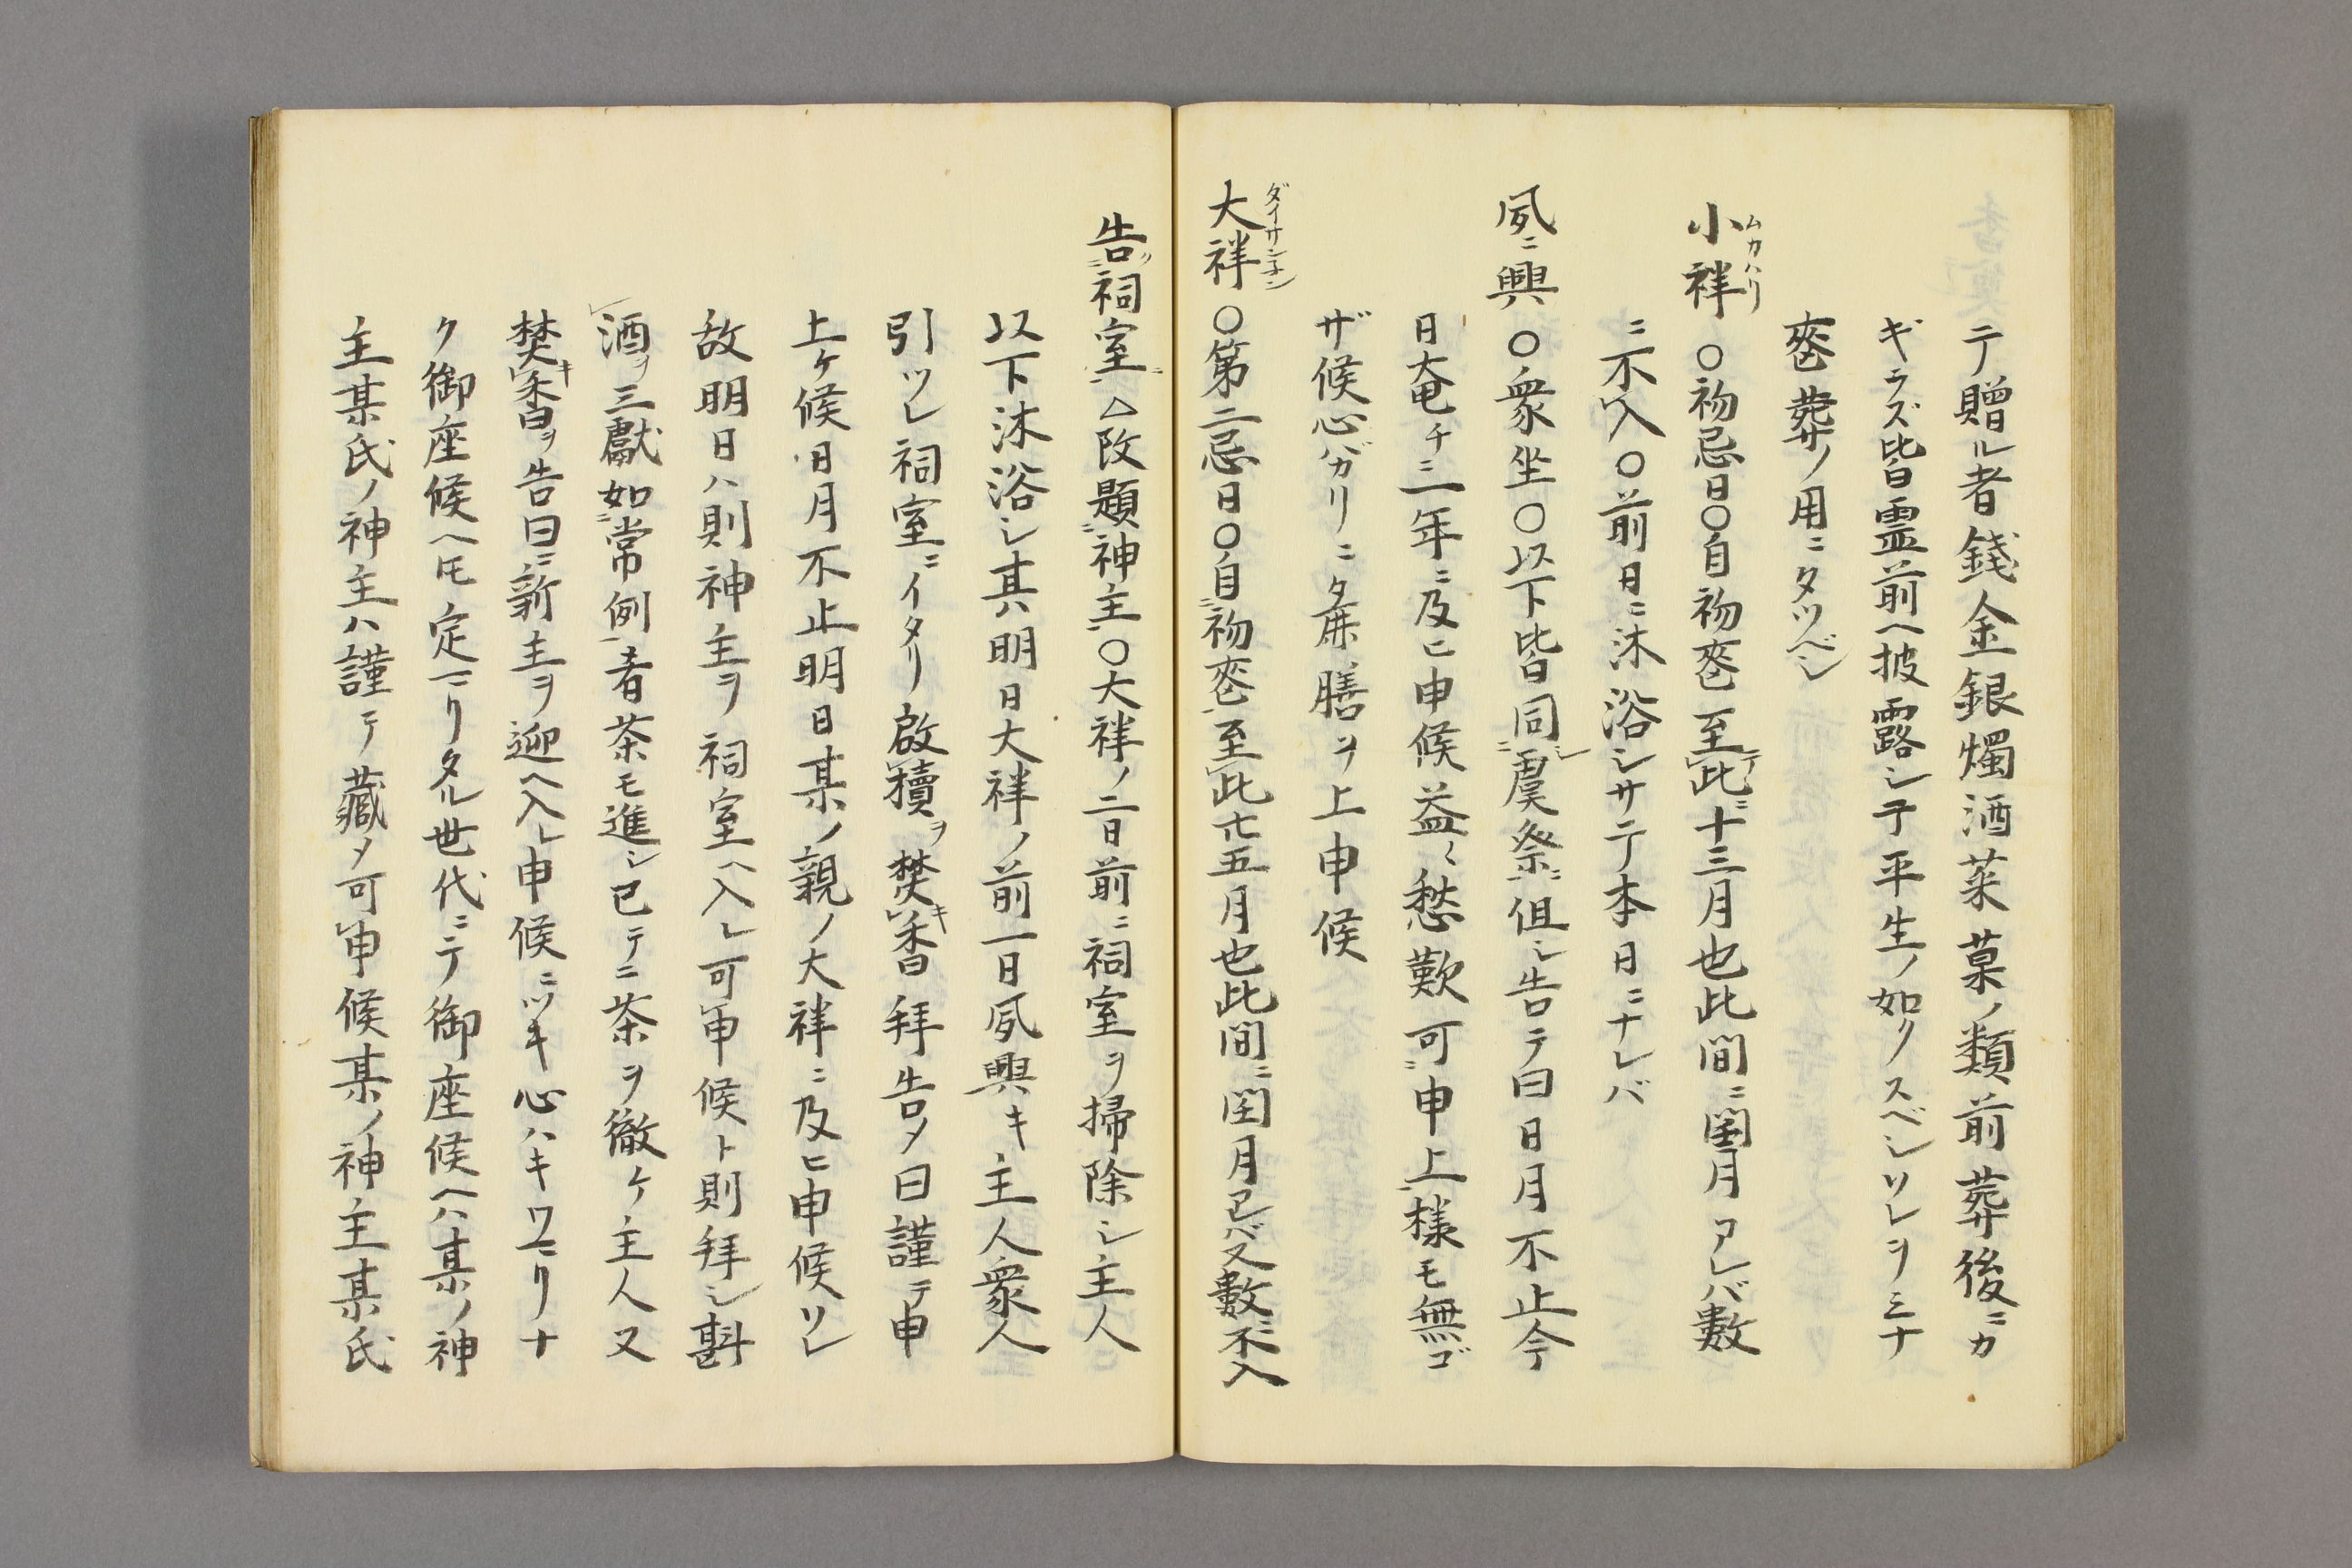 テ贈ル者錢金銀燭酒菜菓ノ類前葬後ニカ
ギラズ皆霊前ヘ披露シテ平生ノ如クスベシソレヲミナ
喪葬ノ用ニタツベシ
小祥 ムカハリ ○初忌日○自初喪至此テ十三月也此間ニ閏月アレバ數
ニ不入○前日ニ沐浴シサテ本日ニナレバ
夙ニ興 ○衆坐○以下皆同虞祭ニ但シ告テ曰日月不止今
日奄チニ一年ニ及ヒ申候益〻愁歎可申上様モ無ゴ
ザ候心バガリニ夕麻膳ヲ上申候
大祥 ダイサンネン ○第二忌日○自初喪至此廿五月也此間ニ閏月アレバ又數ニ不入
告祠室 △改題神主○大祥ノ二日前ニ祠室ヲ掃除シ主人
以下沐浴シ其明日大祥ノ前一日夙興キ主人衆人
引ツレ祠室ニイタリ啟櫝ヲ焚キ香拜告メ曰謹テ申
上ケ候日月不止明日某ノ親ノ大祥ニ及ヒ申候ソレ
故明日ハ則神主ヲ祠室ヘ入レ可申候ト則拜シ斟
酒ヲ三獻如常例者茶モ進シ已テニ茶ヲ徹ケ主人又
焚キ香ヲ告曰ニ新主ヲ迎ヘ入レ申候ニツキ心ハキワニリナ
ク御座候ヘ𪜈定ニリタル世代ニテ御座候ヘハ某ノ神
主某氏ノ神主ハ謹テ藏メ可申候某ノ神主某氏